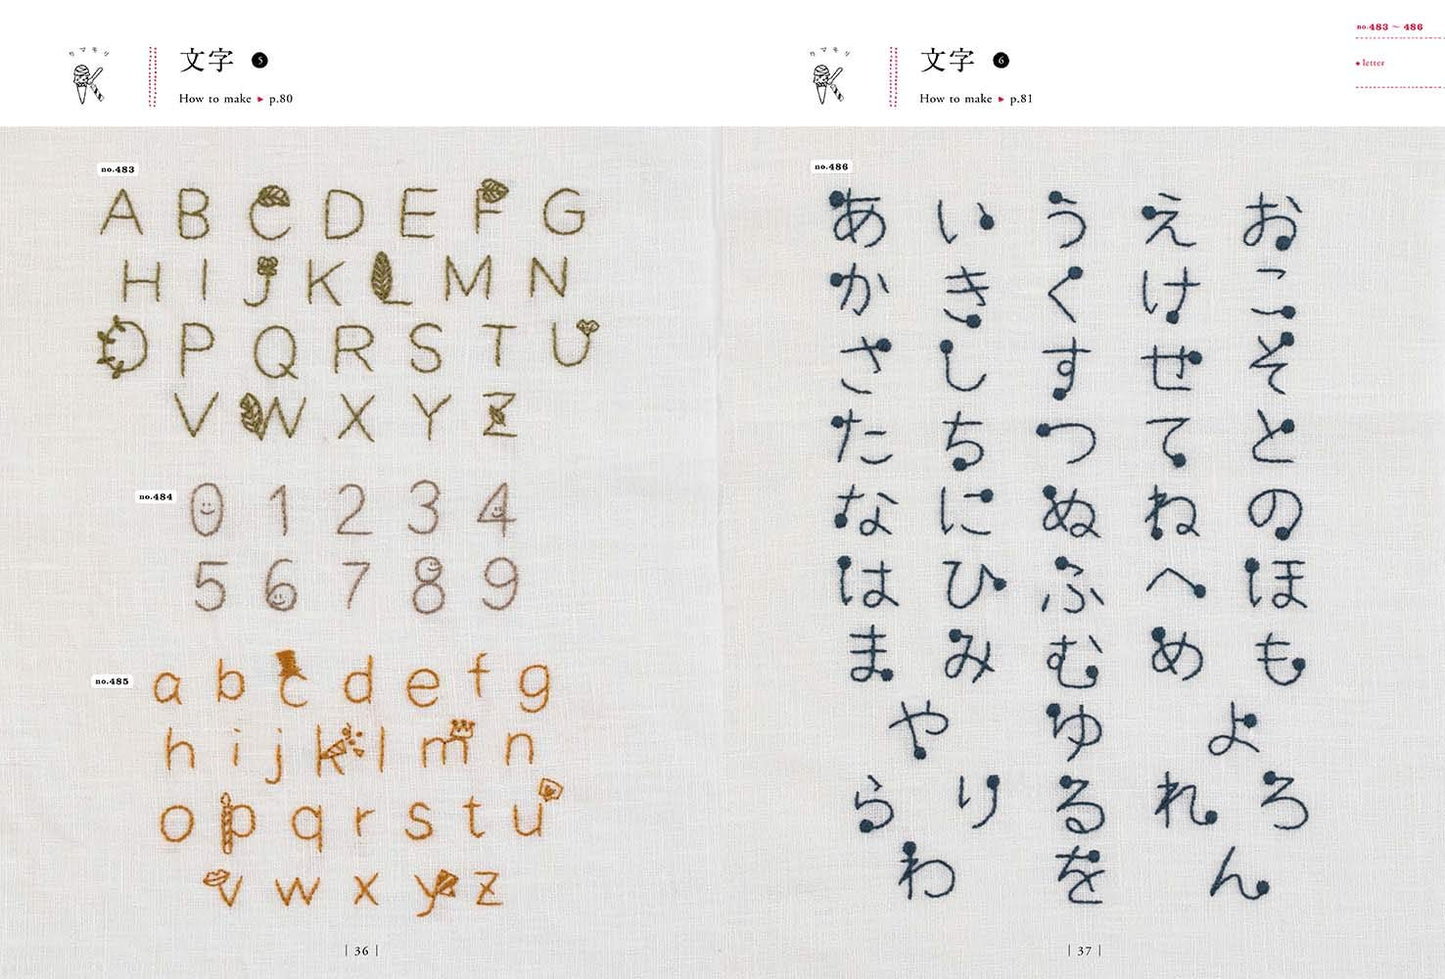 カマモク
文字 5
How to make ▶ p.80
no.483
A B C D E F G
H I J K L M N
O P Q R S T U
V W X Y Z
no.484
0 1 2 3 4
5 6 7 8 9
no.485
a b c d e f g
h i j k l m n
o p q r s t u
v w x y z
| 36 |
文字 6
How to make ▶ p.81
no.483 ~ 486
● letter
no.486
あ い う え お
か き く け こ
さ し す せ そ
た ち つ て と
な に ぬ ね の
は ひ ふ へ ほ
ま み む め も
や ゆ よ
ら り る れ ろ
わ を ん
| 37 |